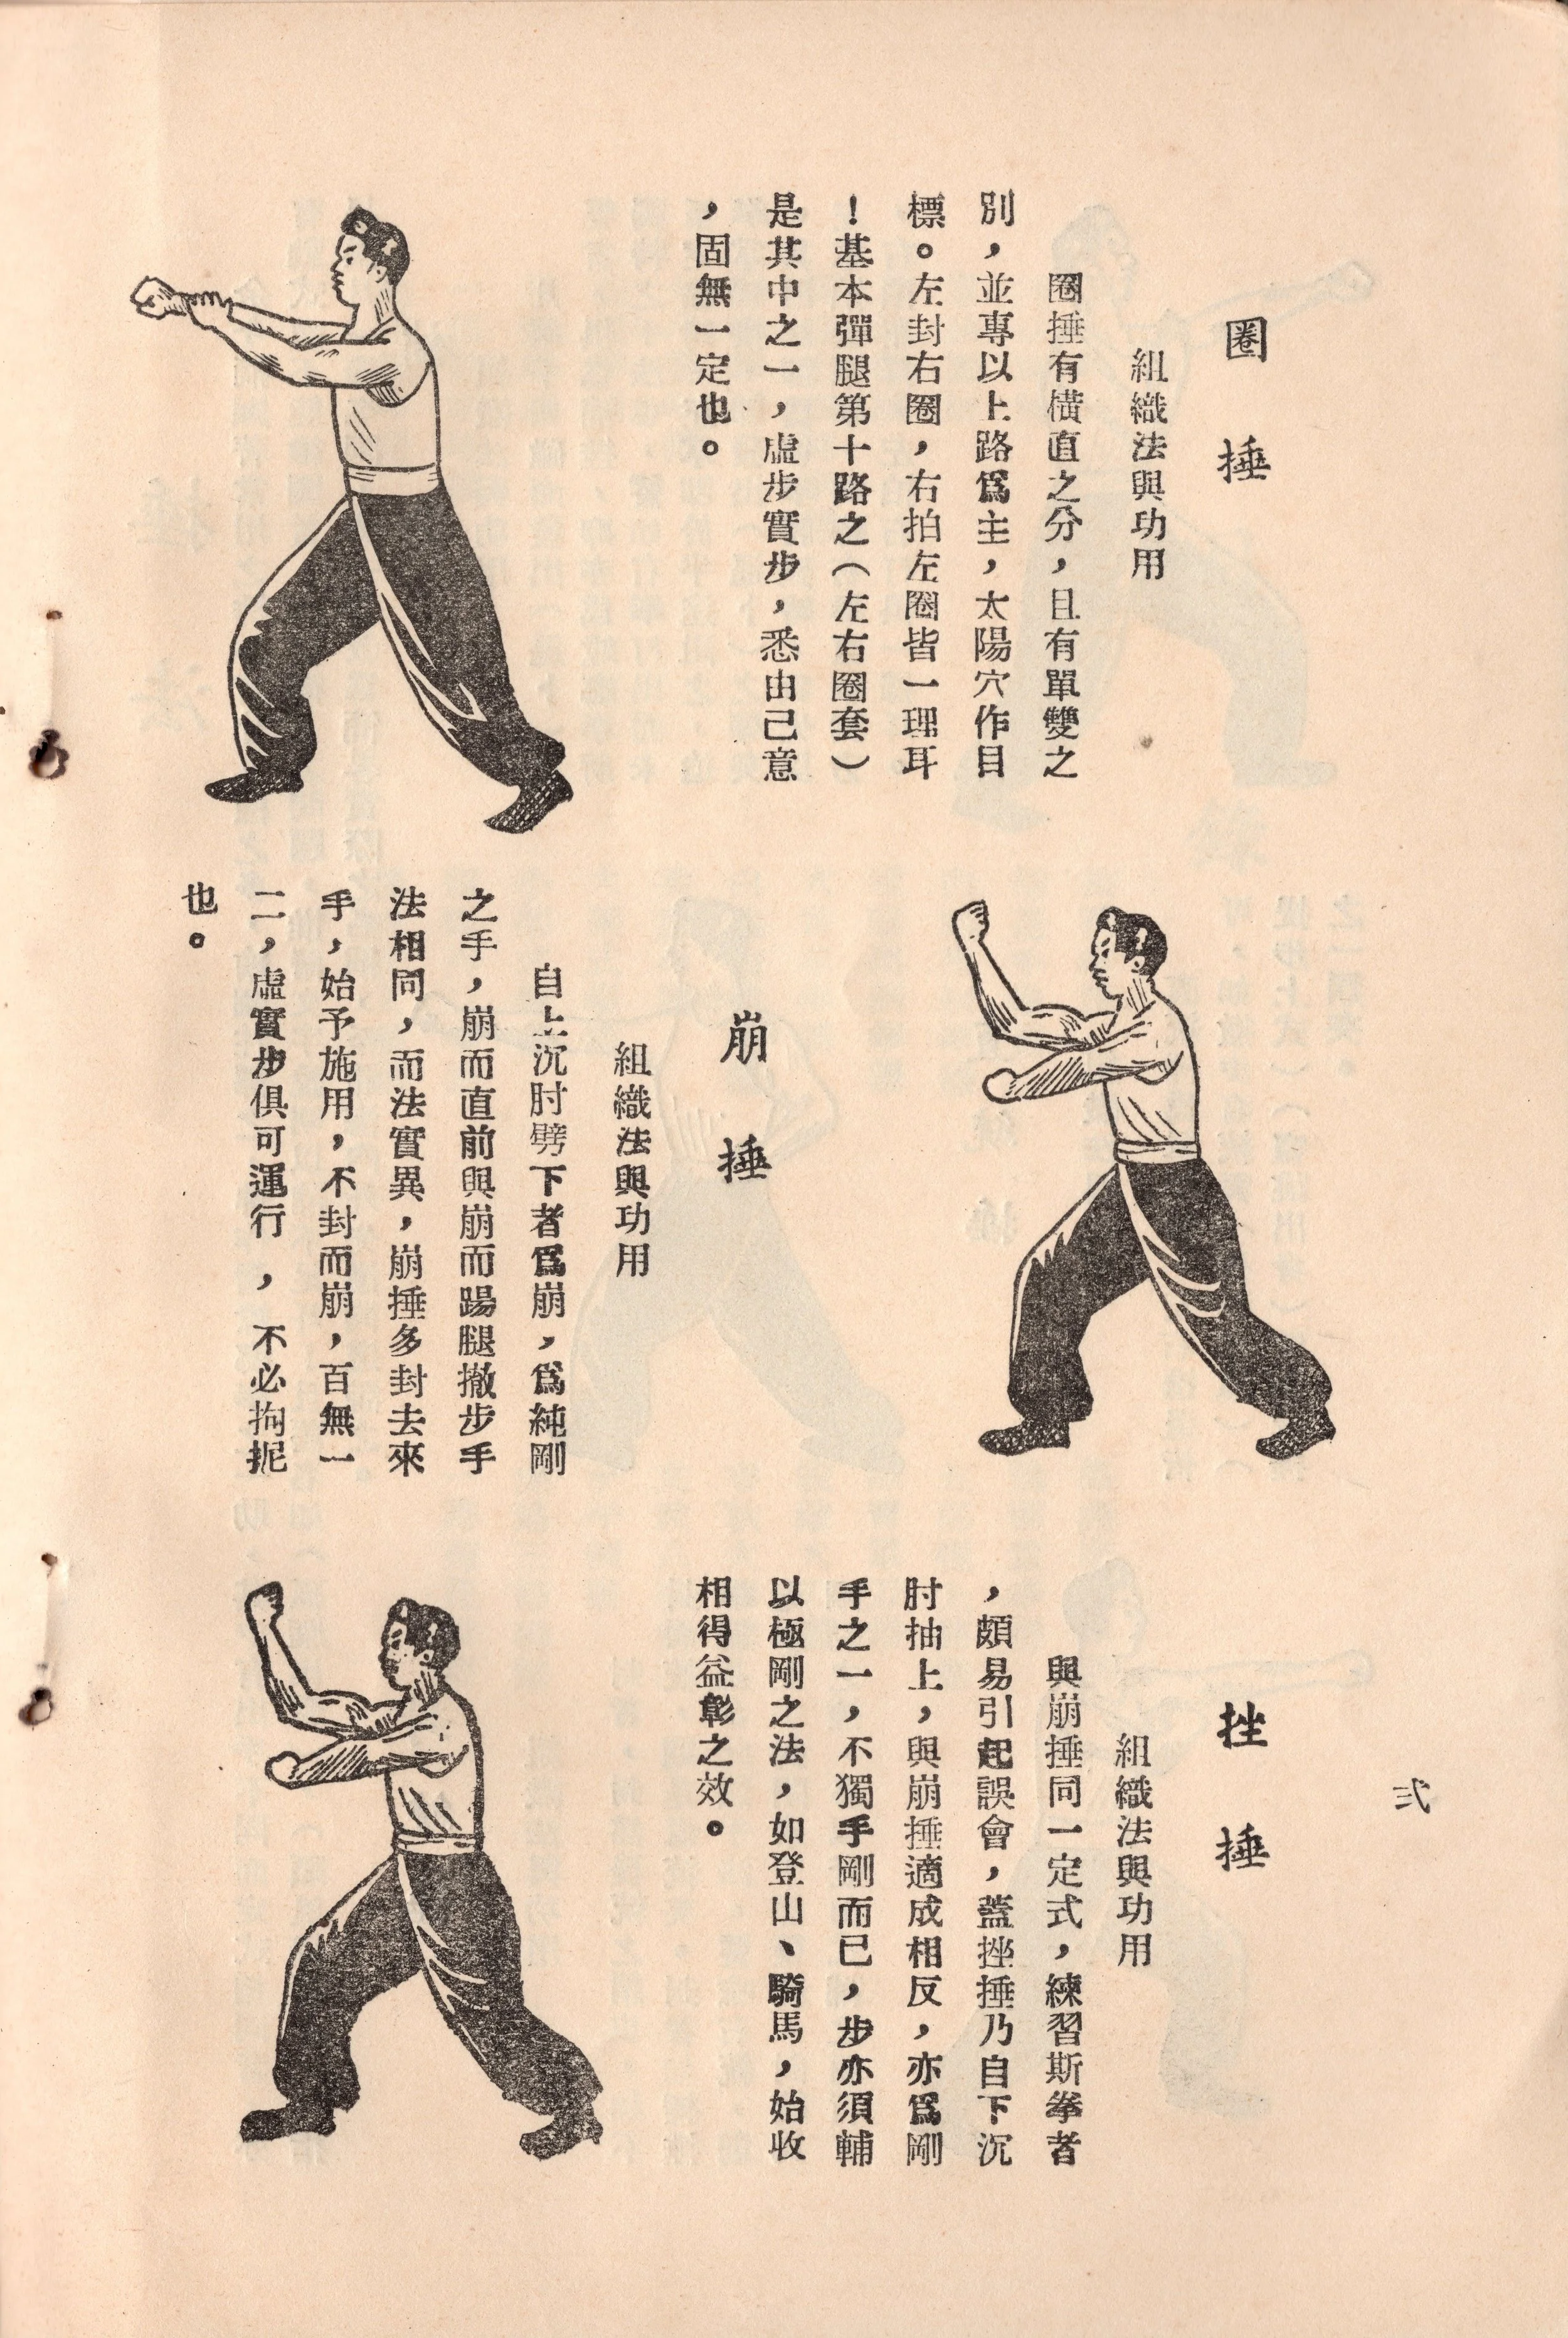 圈捶
組織法與功用
圈捶有橫直之分，且有單雙之
別，並專以上路爲主，太陽穴作目
標。左封右圈，右拍左圈皆一理耳
！基本彈腿第十路之（左右圈套）
是其中之一，虛步實步，悉由己意
，固無一定也。
崩捶
組織法與功用
自上沉肘劈下者爲崩，爲純剛
之手，崩而直前與崩而踢腿撤步手
法相同，而法實異，崩捶多封去來
手，始予施用，不封而崩，百無一
二，虛實步俱可運行，不必拘抳
也。
挫捶
組織法與功用
與崩捶同一定式，練習斯拳者
，頗易引起誤會，蓋挫捶乃自下沉
肘抽上，與崩捶適成相反，亦爲剛
手之一，不獨手剛而已，步亦須輔
以極剛之法，如登山、騎馬，始收
相得益彰之效。
弍